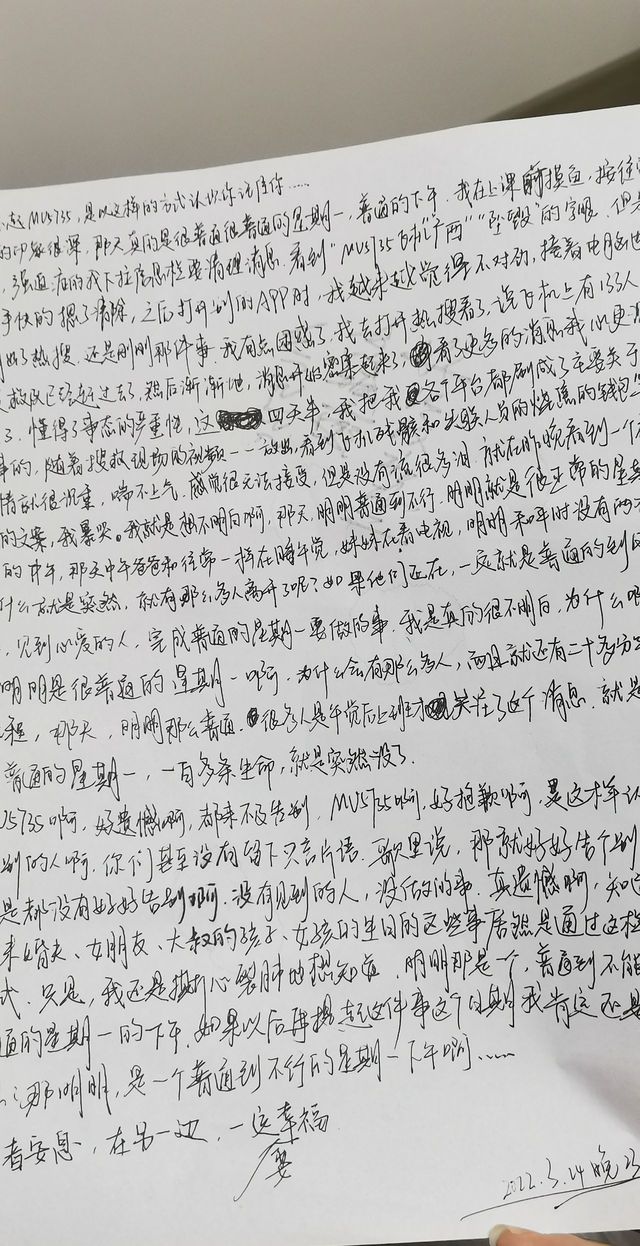 MU5735,是以这样的方式认识你记住你……
的印象很深,那天真的是很普通很普通的星期一,普通的下午,我在上课前摸鱼,按往
,强迫症的我下拉信息栏要清理消息,看到"MU5735在广西""坠毁"的字眼,但
手快的摁了清除,之后打开别的APP时,我越来越觉得不对劲,接着电脑也
热搜,还是刚刚那件事,我有点困惑了,我去打开热搜看了,说飞机上有133人
救队已经赶过去了,然后渐渐地,消息开始密集起来了,看了更多的消息我心更
了,懂得了事态的严重性,这四天半,我把我各个平台都刷成了主要关于
事的,随着搜救现场的视频一一放出,看到飞机残骸和失联人员的烧焦的钱包
情就很沉重,喘不上气,感觉很无法接受,但是没有流很多泪,就在昨晚看到一个
的文案,我暴哭。我就是想不明白啊,那天,明明普通到不行,明明就是很正常的星期
的中午,那天中午爸爸和往常一样在睡午觉,妹妹在看电视,明明和平时没有两
什么就是突然,就有那么多人离开了呢?如果他们还在,一定就是普通的到
,见到心爱的人,完成普通的星期一要做的事,我是真的很不明白,为什么
明明是很普通的星期一啊,为什么会有那么多人,而且就还有二十多分
程,那天,明明那么普通,很多人是午觉后上班才关注了这个消息,就是
普通的星期一,一百多条生命,就是突然没了.
MU5735啊,好遗憾啊,都来不及告别,MU5735啊,好抱歉啊,是这样认
别的人啊,你们甚至没有留下只言片语,歌里说,那就好好告个别
是都没有好好告别啊,没有见到的人,没做的事,真遗憾啊,知
未婚夫、女朋友、大叔的孩子、女孩的生日的这些事居然是通过这种
式,只是,我还是撕心裂肺地想知道,明明那是一个,普通到不能
通的星期一的下午,如果以后再提起这件事这个日期我肯定还是
那明明,是一个普通到不行的星期一下午啊……
者安息,在另一边,一定幸福
要
2022.3.24晚23